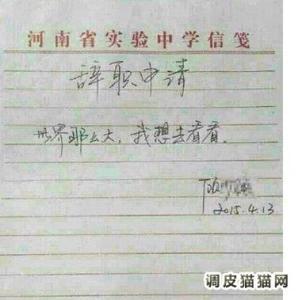 河南省实验中学信笺
辞职申请
世界那么大，我想去看看。
2015.4.13
调皮猫猫网